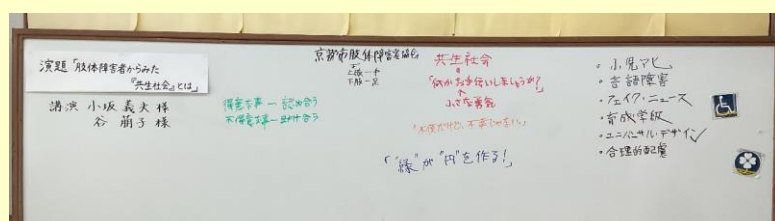 演題「肢体障害者からみた
『共生社会』とは」
講演 小坂義夫様
谷萠子様
得意な事ー認め合う
不得意な事ー助け合う
京都市肢体障害者協会
上肢ー手
下肢ー足
共生社会
「何かお手伝いしましょうか？」
小さな勇気
「不便だけど、不幸じゃない」
「"縁"が"円"を作る！」
・小児マヒ
・言語障害
・フェイク・ニュース
・育成学級
・ユニバーサル・デザイン
・合理的配慮